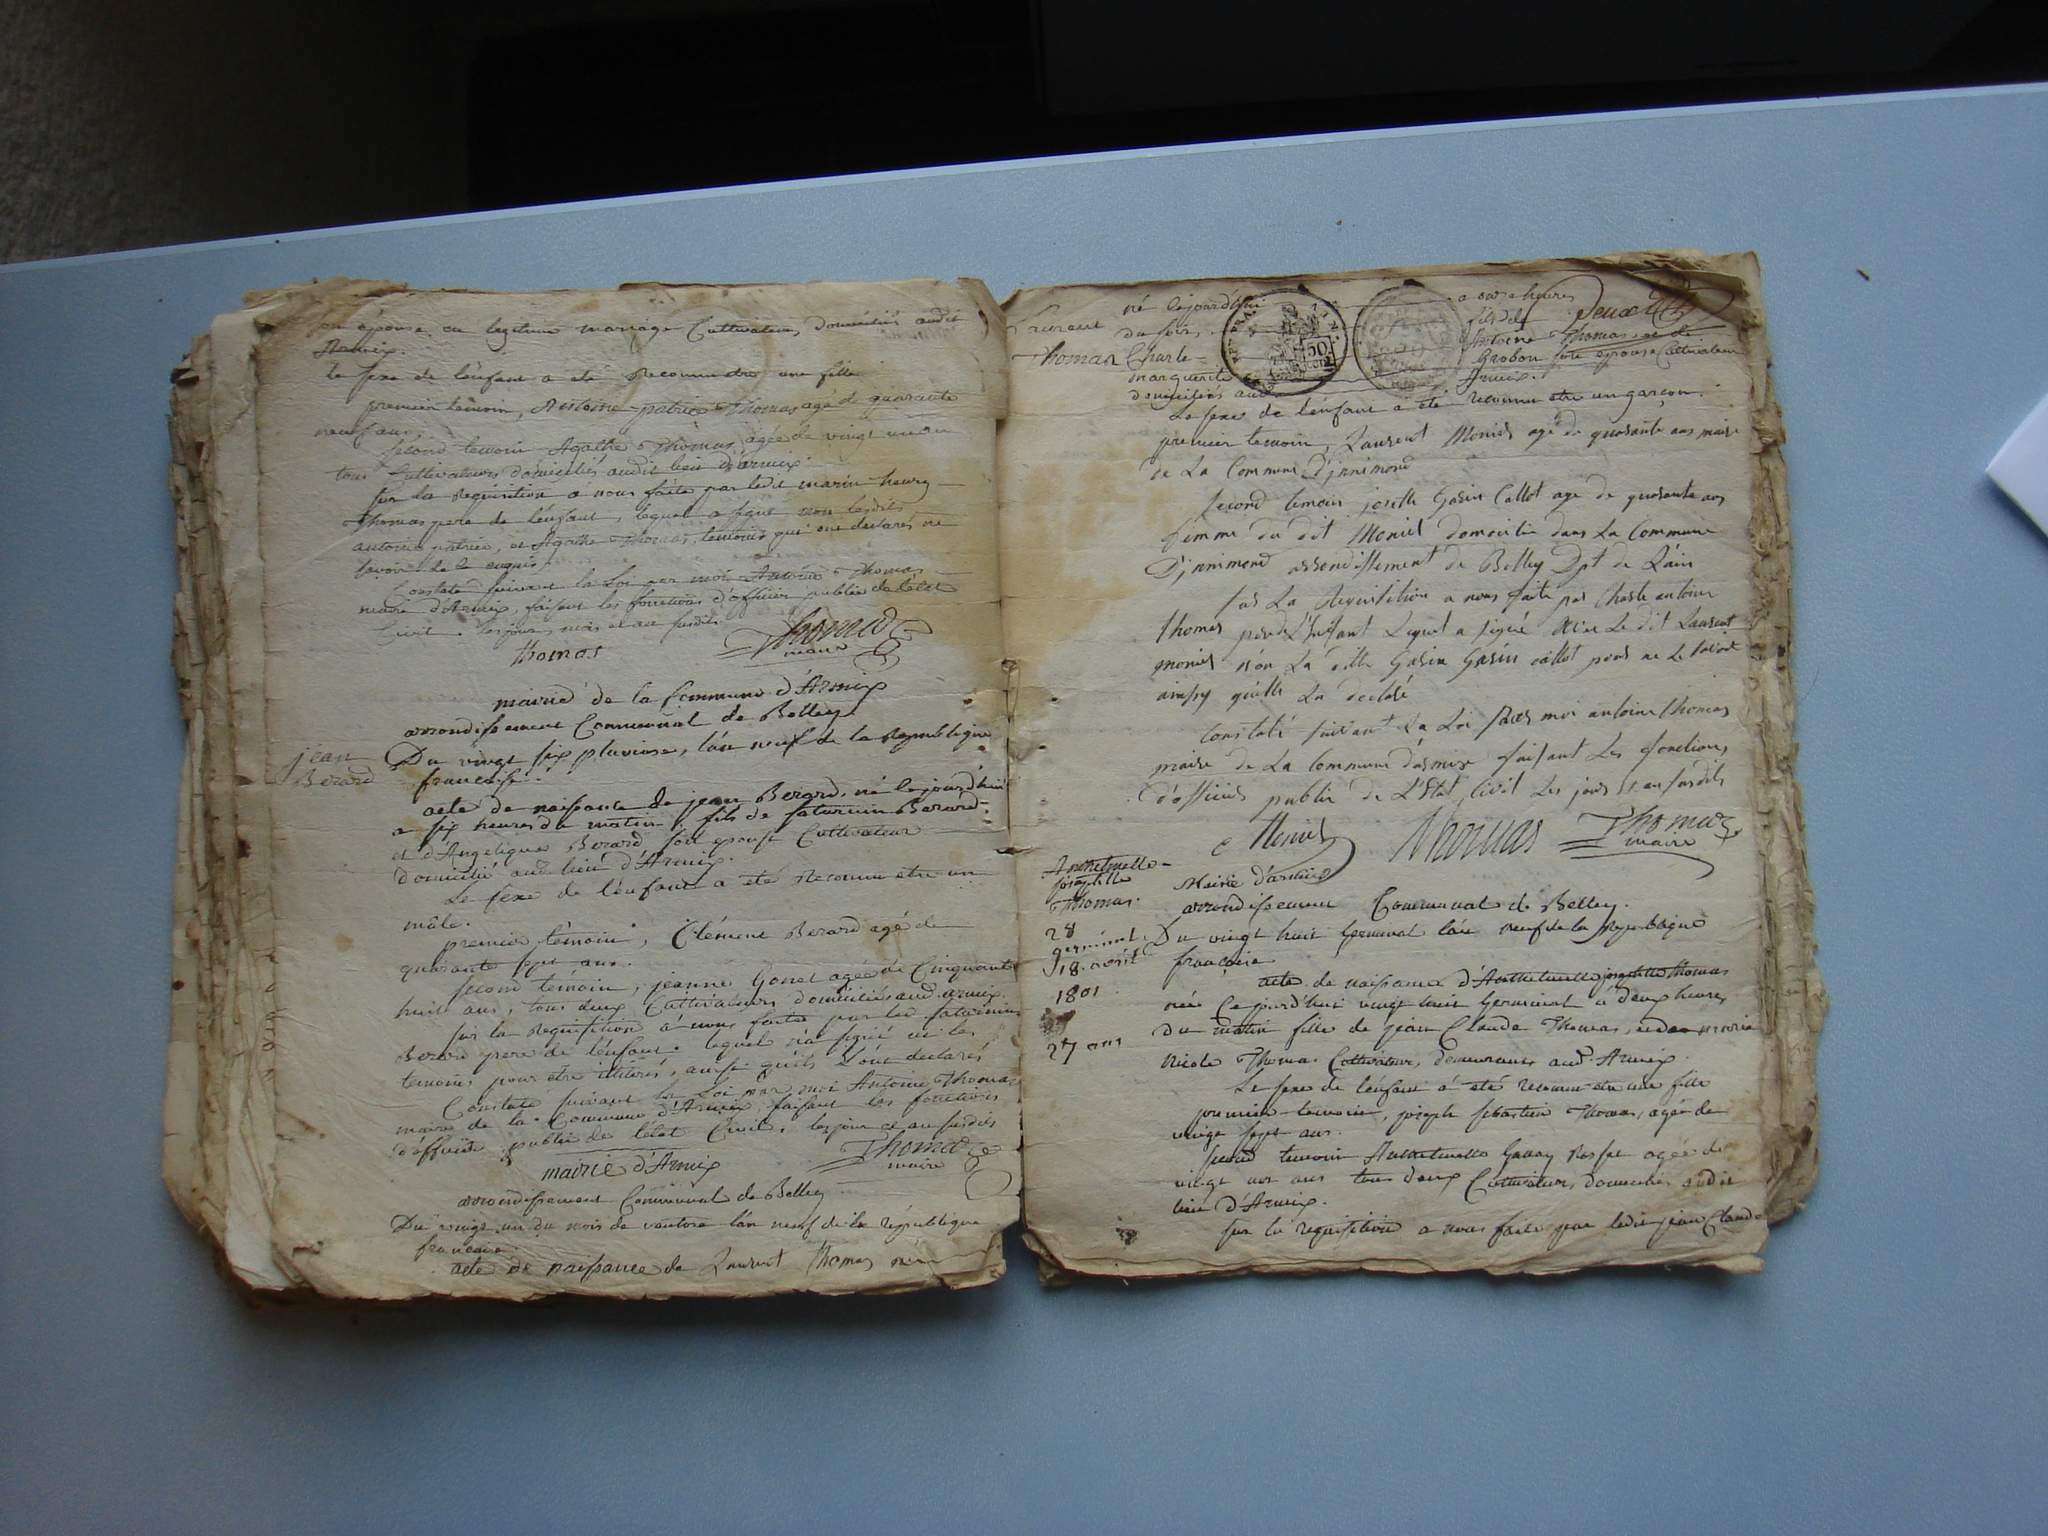 son épouse en legitime mariage Cultivateurs, domiciliés audit
Armix.
le sexe de l'enfant a été Reconnu etre une fille
premier temoin, Antoine-patrice Thomas agé de quarante
neuf ans
second temoin Agathe Thomas, agée de vingt un an
tous Cultivateurs domiciliés audit lieu d'armix.
sur la requisition a nous faite par ledit marin henry
Thomas pere de l'enfant, lequel a signé non lesdits
antoine patrice, et Agathe Thomas, temoins qui ont declarés ne
savoir de ce enquis.
Constaté suivant la Loi par moi Antoine Thomas
maire d'Armix, faisant les fonctions d'officier public de l'état
Civil. les jour, mois et an susdits
thomas Thomas
maire
mairie de la Commune d'Armix
arrondissement Communal de Belley
jean
Berard
Du vingt six pluviose, l'an neuf de la Republique
francaise.
acte de naissance de jean Berard, né le jourd'hui
a six heures du matin, fils de saturnin Berard
et d'Angelique Berard son epouse Cultivateur
domicilié aud. lieu d'Armix.
Le sexe de l'enfant a été Reconnu etre un
mâle.
premier témoin, Clément Berard agé de
quarante sept ans.
second témoin, jeanne Gonet agée de Cinquante
huit ans, tous deux Cultivateurs domiciliés aud. armix.
sur la Requisition à nous faite par led. saturnin
Berard pere de l'enfant. lequel n'a signé ni les
temoins pour etre illiterés, ainsi qu'ils l'ont declarés
Constaté suivant la Loi par moi Antoine Thomas
maire de la Commune d'Armix, faisant les fonctions
d'officier public de l'état Civil, les jour et an susdits
Thomas
maire
mairie d'Armix
arrondissement Communal de Belley
Du vingt un du mois de vantose l'an neuf de la république
francaise.
acte de naissance de Laurent Thomas né
Laurent
Thomas
né lejourd'hui a onze heures
du soir, fils de
Charle Antoine Thomas et de
marguerite Grobon son epouse Cultivateur
domiciliés aud. Armix.
Le sexe de l'enfant a été reconnu etre un garçon.
premier temoin, Laurent Moniet agé de quarante ans maire
de La Commune D'jnnimond
second temoin josette Gasin Callot age de quarante ans
femme du dit Moniet domicilié dans La Commune
D'jnnimond arrondissement de Belley Dpt de L'ain
sur La Requisition a nous faite par Charle antoine
thomas pere de L'enfant Lequel a signé avec Le dit Laurent
moniet non La ditte Gasin Gasin callot pour ne Le savoir
ainsy quelle La declaré
Constaté suivant La Loi par moi antoine thomas
maire de La Commune d'armix faisant Les fonctions
d'officier public de L'Etat Civil Les jours et an susdits
Moniet Thomas Thomas
maire
Antheimette
josephtte
Thomas.
28
germinal.
18. avril
1801
27 ans
Mairie d'armix
arrondissement Communal de Belley.
Du vingt huit Germinal l'an neuf de la Republique
francaise
acte de naissance d'Antheimette josephtte Thomas
née Cejourd'hui vingt huit Germinal à deux heures
du matin fille de jean Claude Thomas, et de marie
Nicole Thomas Cultivateurs, demeurants aud. Armix.
Le sexe de l'enfant à été reconnu etre une fille
premier temoin, joseph sebastien Thomas, agé de
vingt sept ans.
second temoin Antheimette Rosset agée de
vingt ans tous deux Cultivateurs, domiciliés audit
lieu d'Armix.
sur la requisition a nous faite par ledit jean Claude